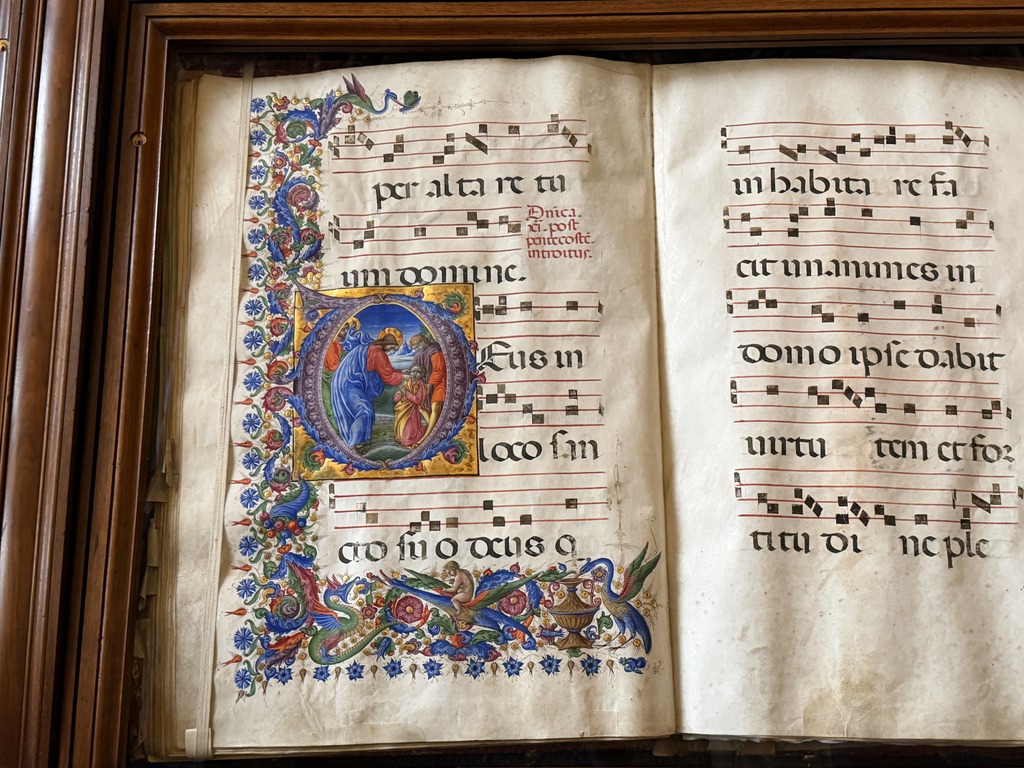 per alta re tu
Dnica.
xi. post
pentecostē.
introitus.
um domine.
Eus in
loco san
cto su o deus q
in habita re fa
cit unanimes in
domo ipse dabit
virtu tem et for
titu di ne ple